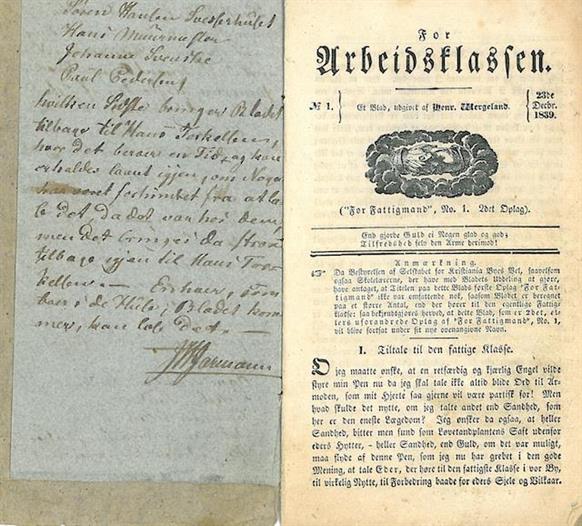 Søren Hansen Svesserhuset
Hans Muurmester
Johanne Svenske
Paul Pedersen,
hvilken Sidste bringer Bladet
tilbage til Hans Torkelsen,
hvor det beroer en Tid, og kan
erholdes laant igjen, om Nogen
har været forhindret fra at læ-
se det, da det var hos dem,
men det bringes da strax
tilbage igjen til Hans Tor-
kelsen. — Enhver, som
boer i de Huse, Bladet kom-
mer, kan læse det. —
For
Arbeidsklassen.
№ 1.
Et Blad, udgivet af Henr. Wergeland.
23de
Decbr.
1839.
("For Fattigmand", No. 1. 2det Oplag).
End gjorde Guld ei Nogen glad og god;
Tilfredshed selv den Arme derimod!
Anmærkning.
Da Bestyrelsen af Selskabet for Kristiania Byes Vel, saavelsom
ogsaa Skolelærerne, der have med Bladets Uddeling at gjøre,
have antaget, at Titelen paa dette Blads første Oplag "For Fat-
tigmand" ikke var omfattende nok, saasom Bladet er beregnet
paa et større Antal end der hører til den egentlige Fattige
Klasse: saa bekjendtgjøres herved, at dette Blad, som er 2det, el-
lers uforandrede Oplag af "For Fattigmand", No. 1, vil
blive fortsat under sit nye ovenangivne Navn.
1. Tiltale til den fattige Klasse.
O jeg maatte ønske, at en retfærdig og kjærlig Engel vilde
styre min Pen nu da jeg skal tale ikke altid blide Ord til Ar-
moden, som mit Hjerte saa gjerne vil være partisk for! Men
hvad skulde det nytte, om jeg talte andet end Sandhed, som
her er den eneste Lægedom? Jeg ønsker da ogsaa, at heller
Sandhed, bitter men sund som Løvetandplantens Saft udenfor
eders Hytter, - heller Sandhed, end Guld, om det var muligt,
maa flyde af denne Pen, som jeg nu har grebet i den gode
Mening, at tale Eder, der høre til den fattigste Klasse i vor By,
til virkelig Nytte, til Forbedring baade for eders Sjele og Vilkaar.